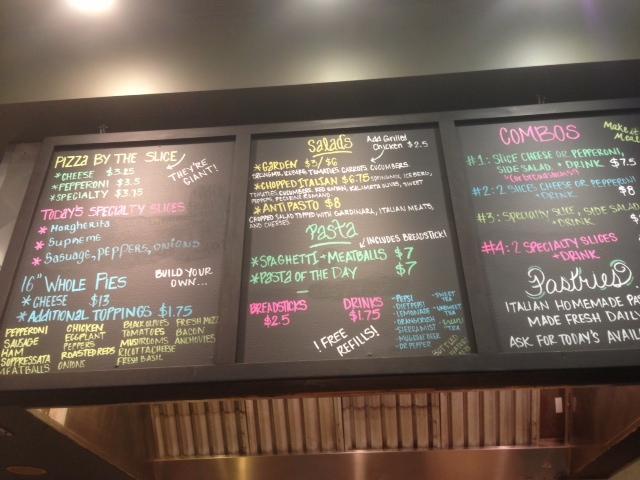 PIZZA BY THE SLICE
*CHEESE $3.25
*PEPPERONI $3.5
*SPECIALTY $3.75
THEY'RE GIANT!
TODAY'S SPECIALTY SLICES
* Margherita
* Supreme
* Sasuage, PEPPERS, ONIONS
16" WHOLE PIES
BUILD YOUR OWN...
*CHEESE $13
*ADDITIONAL TOPPINGS $1.75
PEPPERONI
SAUSAGE
HAM
SOPPRESSATA
MEATBALLS
CHICKEN
EGGPLANT
PEPPERS
ROASTED REDS
ONIONS
BLACK OLIVES
TOMATOES
MUSHROOMS
RICOTTA CHEESE
FRESH BASIL
FRESH MOZZ
BACON
ANCHOVIES
Salads
Add Grilled Chicken $2.5
*GARDEN $3/$6
TOMATOES CARROTS CUCUMBERS
*CHOPPED ITALIAN $6.75
TOMATOES, CUCUMBERS, RED ONION, KALAMATA OLIVES, SWEET
PEPPERS, PECORINO ROMANO
*ANTIPASTO $8
CHOPPED SALAD TOPPED WITH GARDINARA, ITALIAN MEATS,
AND CHEESES
Pasta
INCLUDES BREADSTICK!
*SPAGHETTI + MEATBALLS $7
*PASTA OF THE DAY $7
BREADSTICKS
$2.5
DRINKS
$1.75
! FREE REFILLS!
-PEPSI
-DIET PEPSI
-LEMONADE
-SIERRA MIST
-DR PEPPER
-SWEET TEA
COMBOS
Make it Meal
#1: SLICE CHEESE OR PEPPERONI,
SIDE SALAD + DRINK $7.5
#2: 2 SLICES CHEESE OR PEPPERONI
+ DRINK $8
#3: SPECIALTY SLICE, SIDE SALAD
+ DRINK
#4: 2 SPECIALTY SLICES
+ DRINK
Pastries
ITALIAN HOMEMADE
MADE FRESH DAILY
ASK FOR TODAY'S